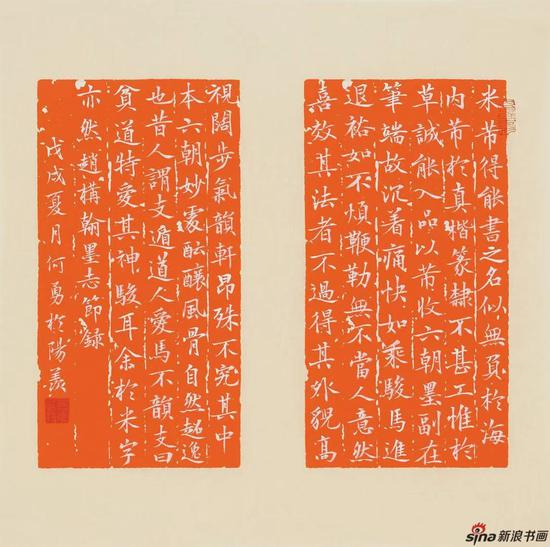 米芾得能書之名似無負於海
内芾於真楷篆隸不甚工惟於
草誠能入品以芾收六朝墨副在
筆端故沉着痛快如乘駿馬進
退裕如不煩鞭勒無不當人意然
喜效其法者不過得其外貌高
視闊步氣韻軒昂殊不究其中
本六朝妙處醞釀風骨自然超逸
也昔人謂支遁道人愛馬不韻支曰
貧道特愛其神駿耳余於米字
亦然趙構翰墨志節録
戊戌夏月何勇於陽羨
sina新浪书画